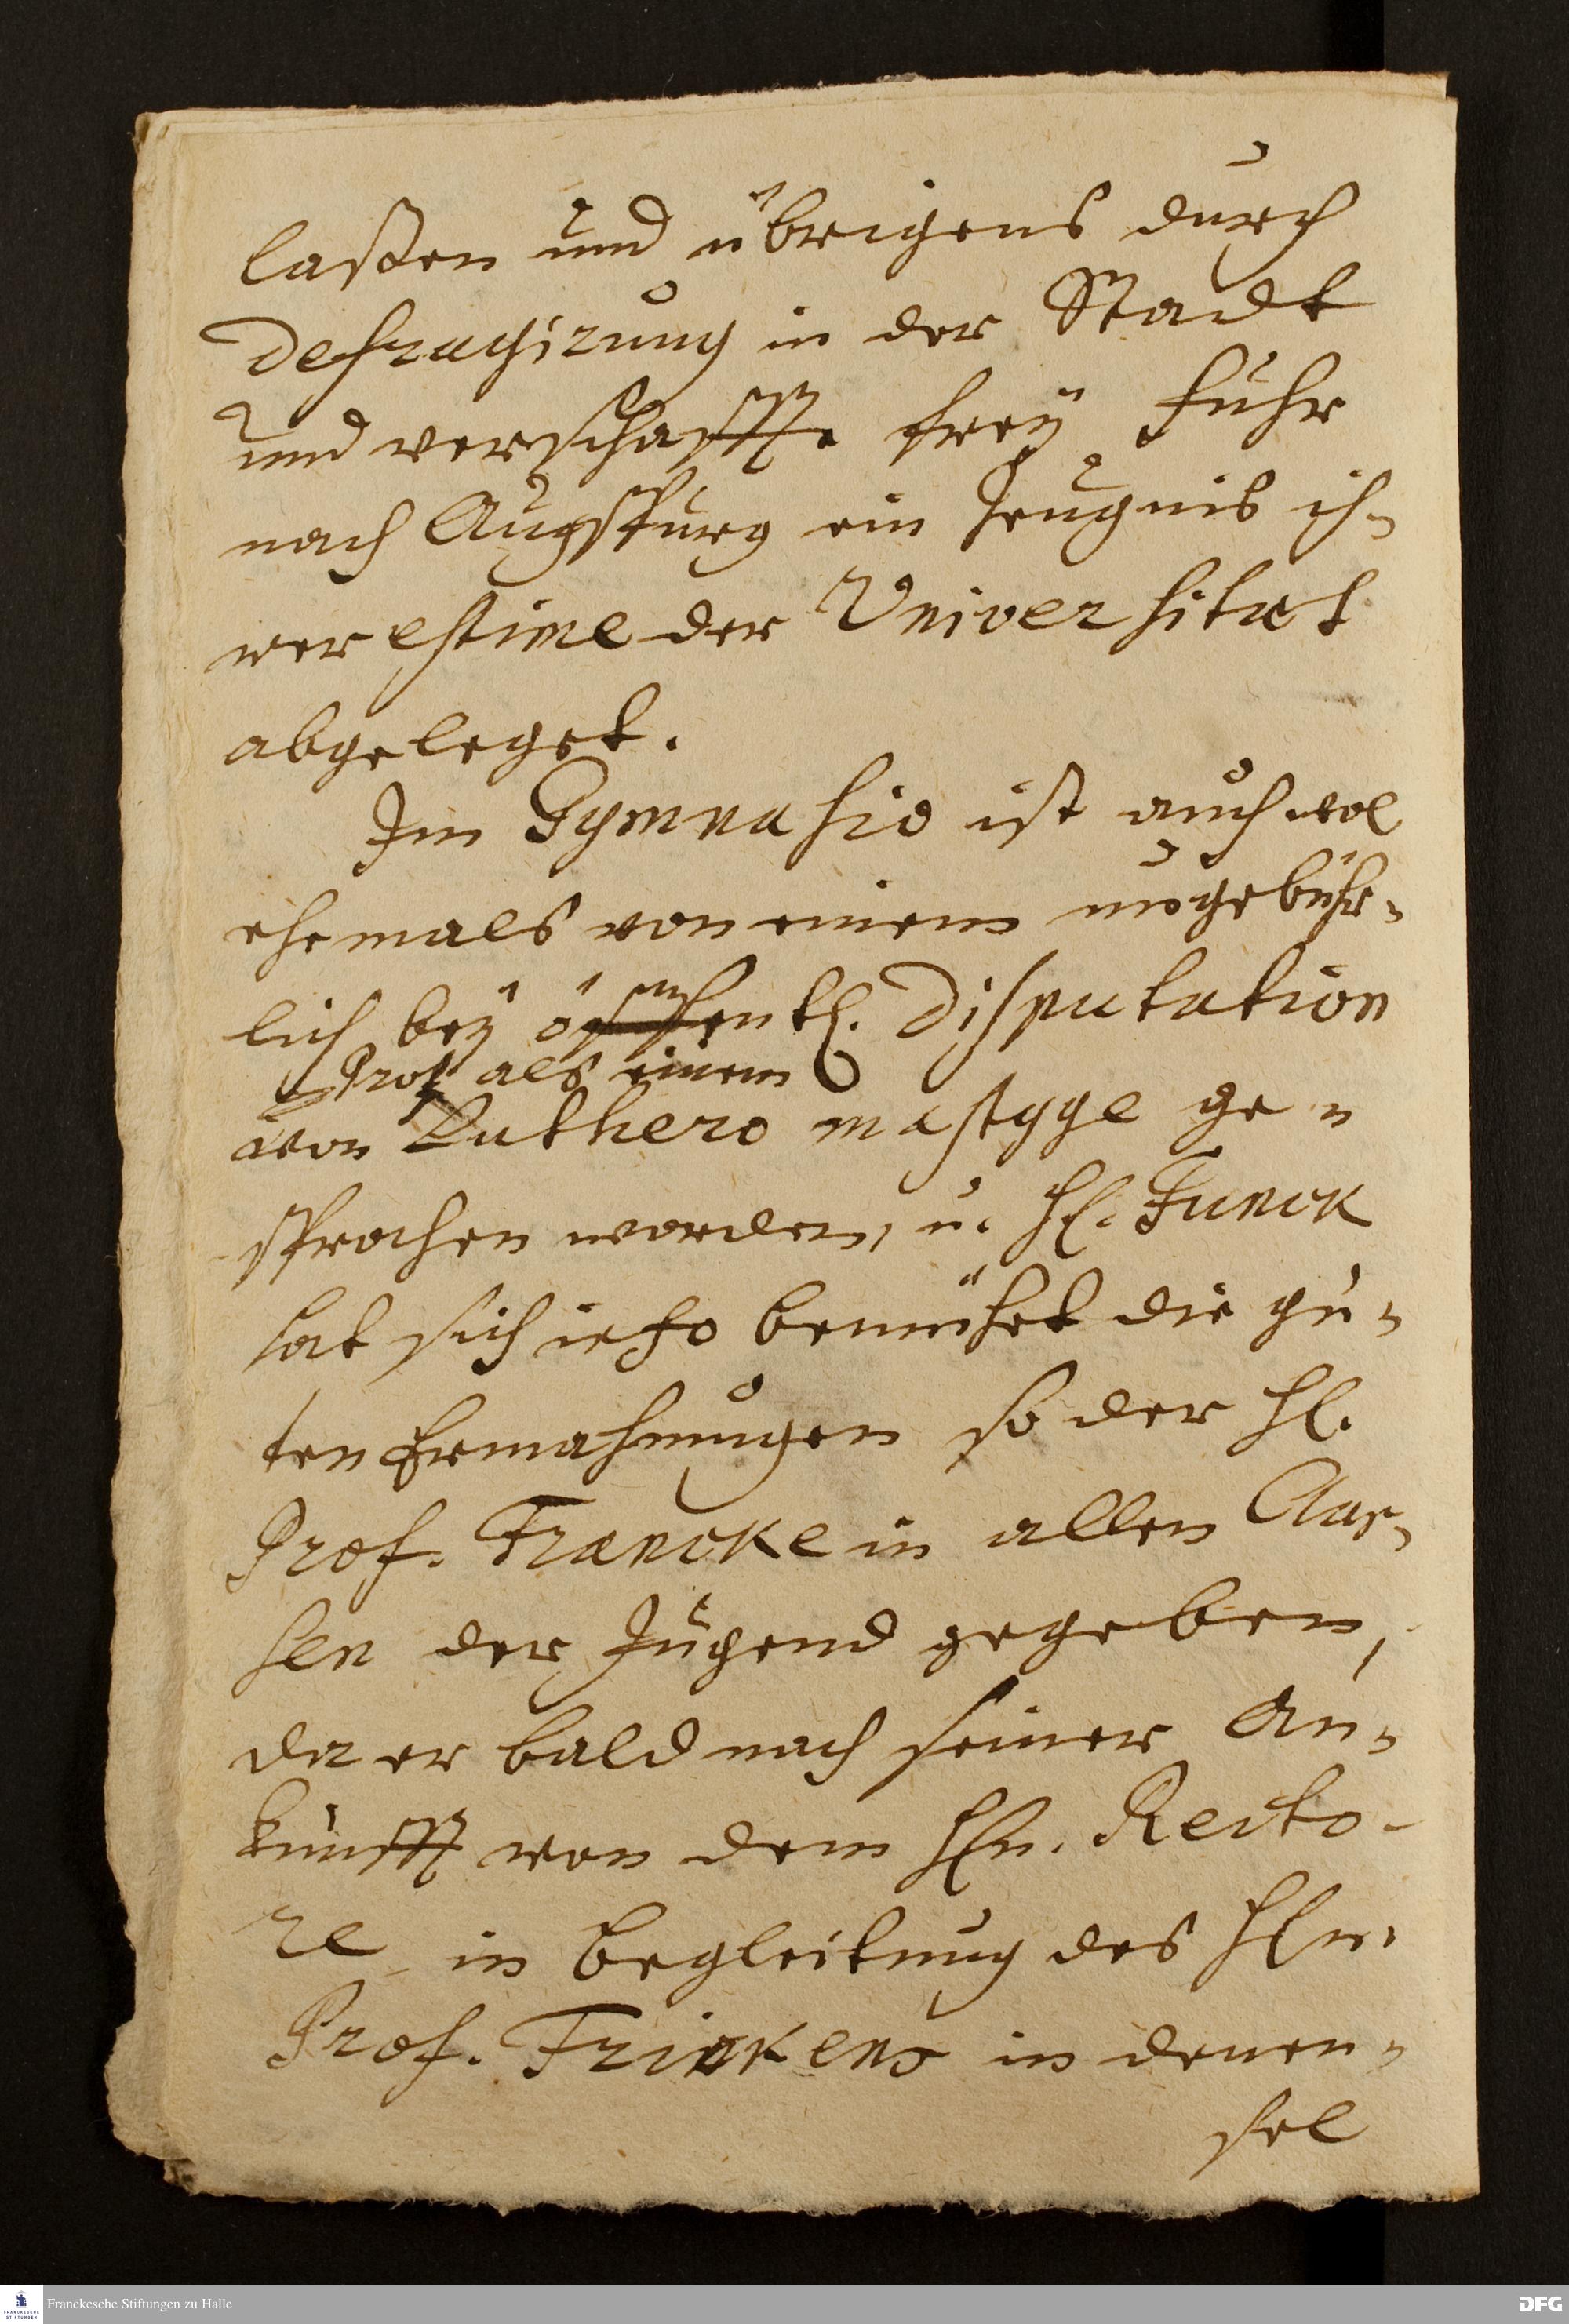 laßen und übrigens durch
Defragirung in der Stadt
und verschaffte freÿ Fuhr
nach Augspurg ein Zeugnis ih-
rer estime der Universitæt
abgeleget.
Im Gymnasio ist auch wol
ehemals von einem ungebühr-
lich beÿ öffentl. Disputation
Prof. als einem
von Luthero mastyge ge-
sprochen worden, u. H. Funck
hat sich ietzo bemühet die gu-
ten Ermahnungen so der H.
Prof. Francke in allen Clas-
sen der Jugend gegeben,
da er bald nach seiner An-
kunfft von dem Hn. Recto-
re in Begleitung des Hn.
Prof. Frickens in denen-
sel
Franckesche Stiftungen zu Halle
DFG